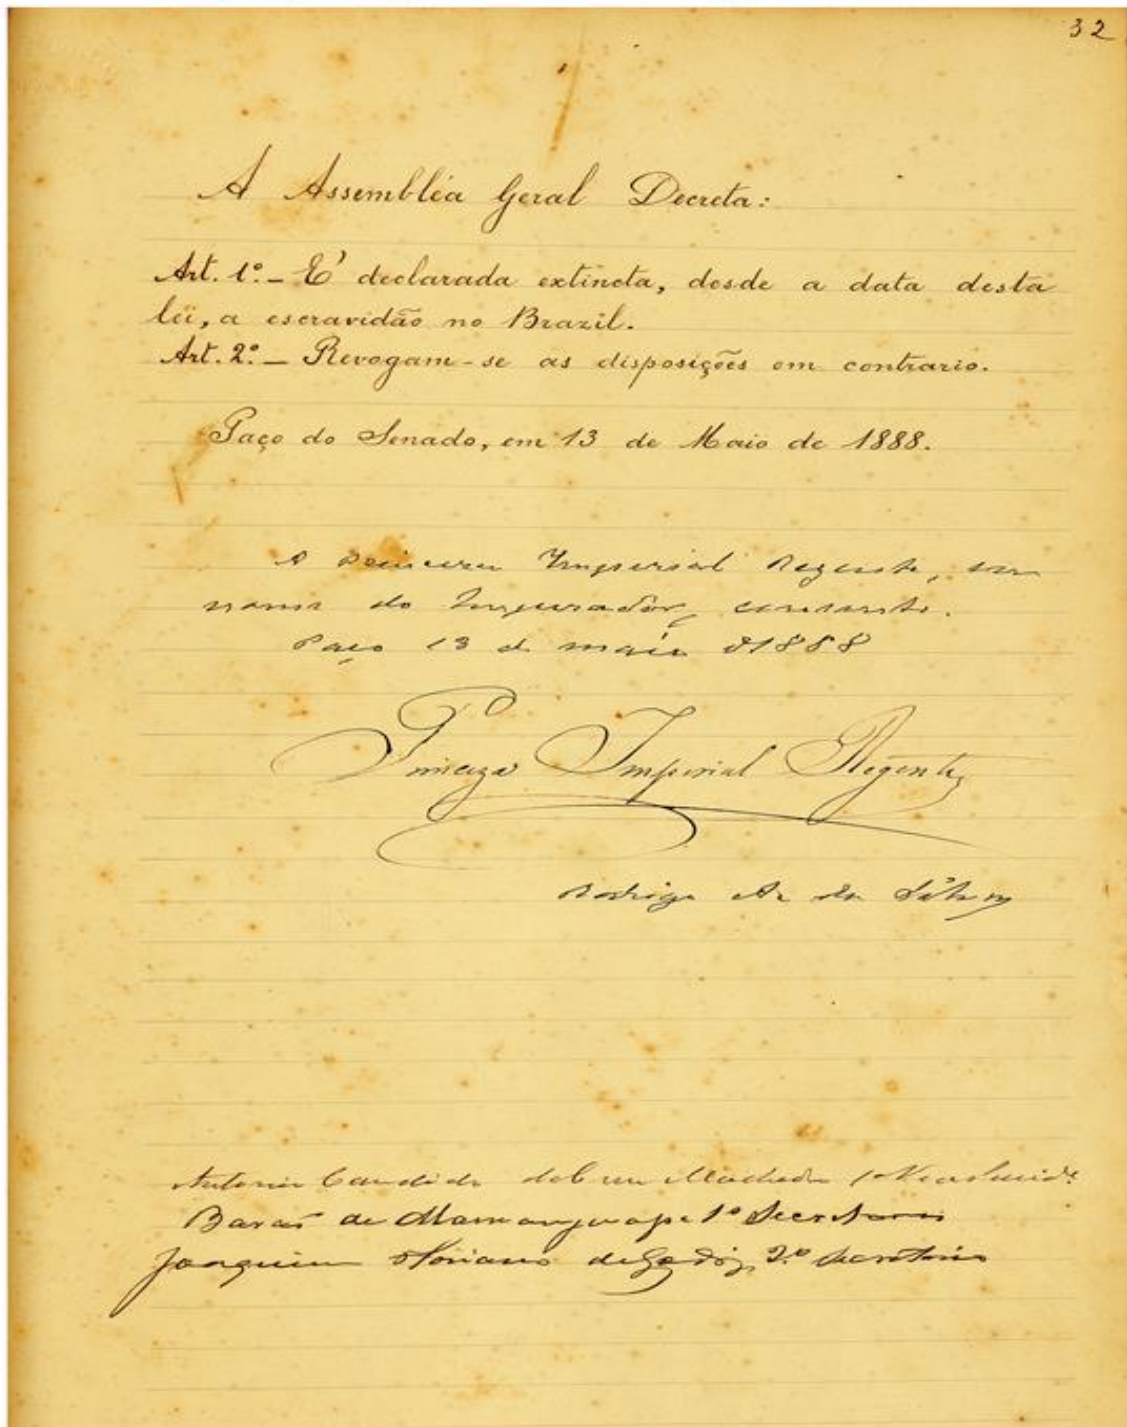 32
A Assembléa Geral Decreta:
Art. 1º.- E' declarada extincta, desde a data desta
lei, a escravidão no Brazil.
Art. 2º.- Revogam-se as disposições em contrario.
Paço do Senado, em 13 de Maio de 1888.
A Princesa Imperial Regente, em
nome do Imperador, consente.
Paço 13 de maio d1888
Princeza Imperial Regente
Rodrigo A. da Silva
Antonio Candido da Cruz Machado
Barão de Mamanguape 1º Secretario
Joaquim Floriano de Godoy, 2º Secretario